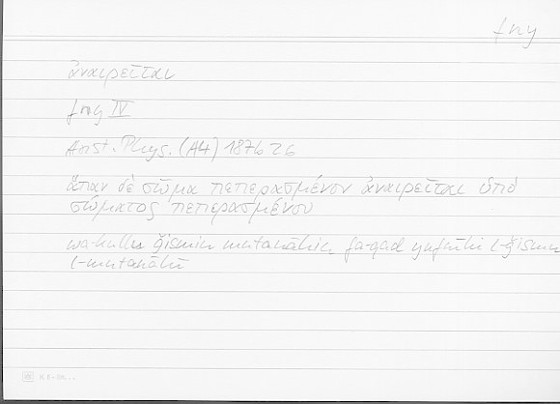 fny
ἀναιρεῖται
fny IV
Arist. Phys. (A4) 187b26
ἅπαν δὲ σῶμα πεπερασμένον ἀναιρεῖται ὑπὸ
σώματος πεπερασμένου
wa-kullu ǧismin mutanāhin fa-qad yufnīhi l-ǧismu
l-mutanāhī